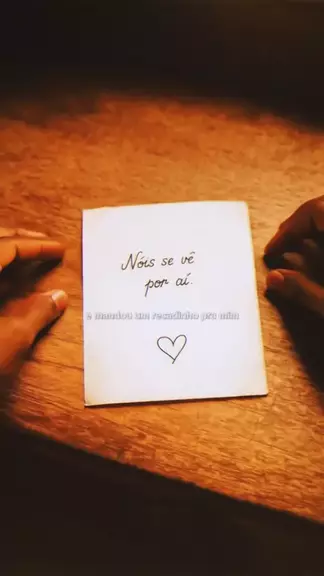 Nóis se vê
por aí.
e mandou um recadinho pra mim